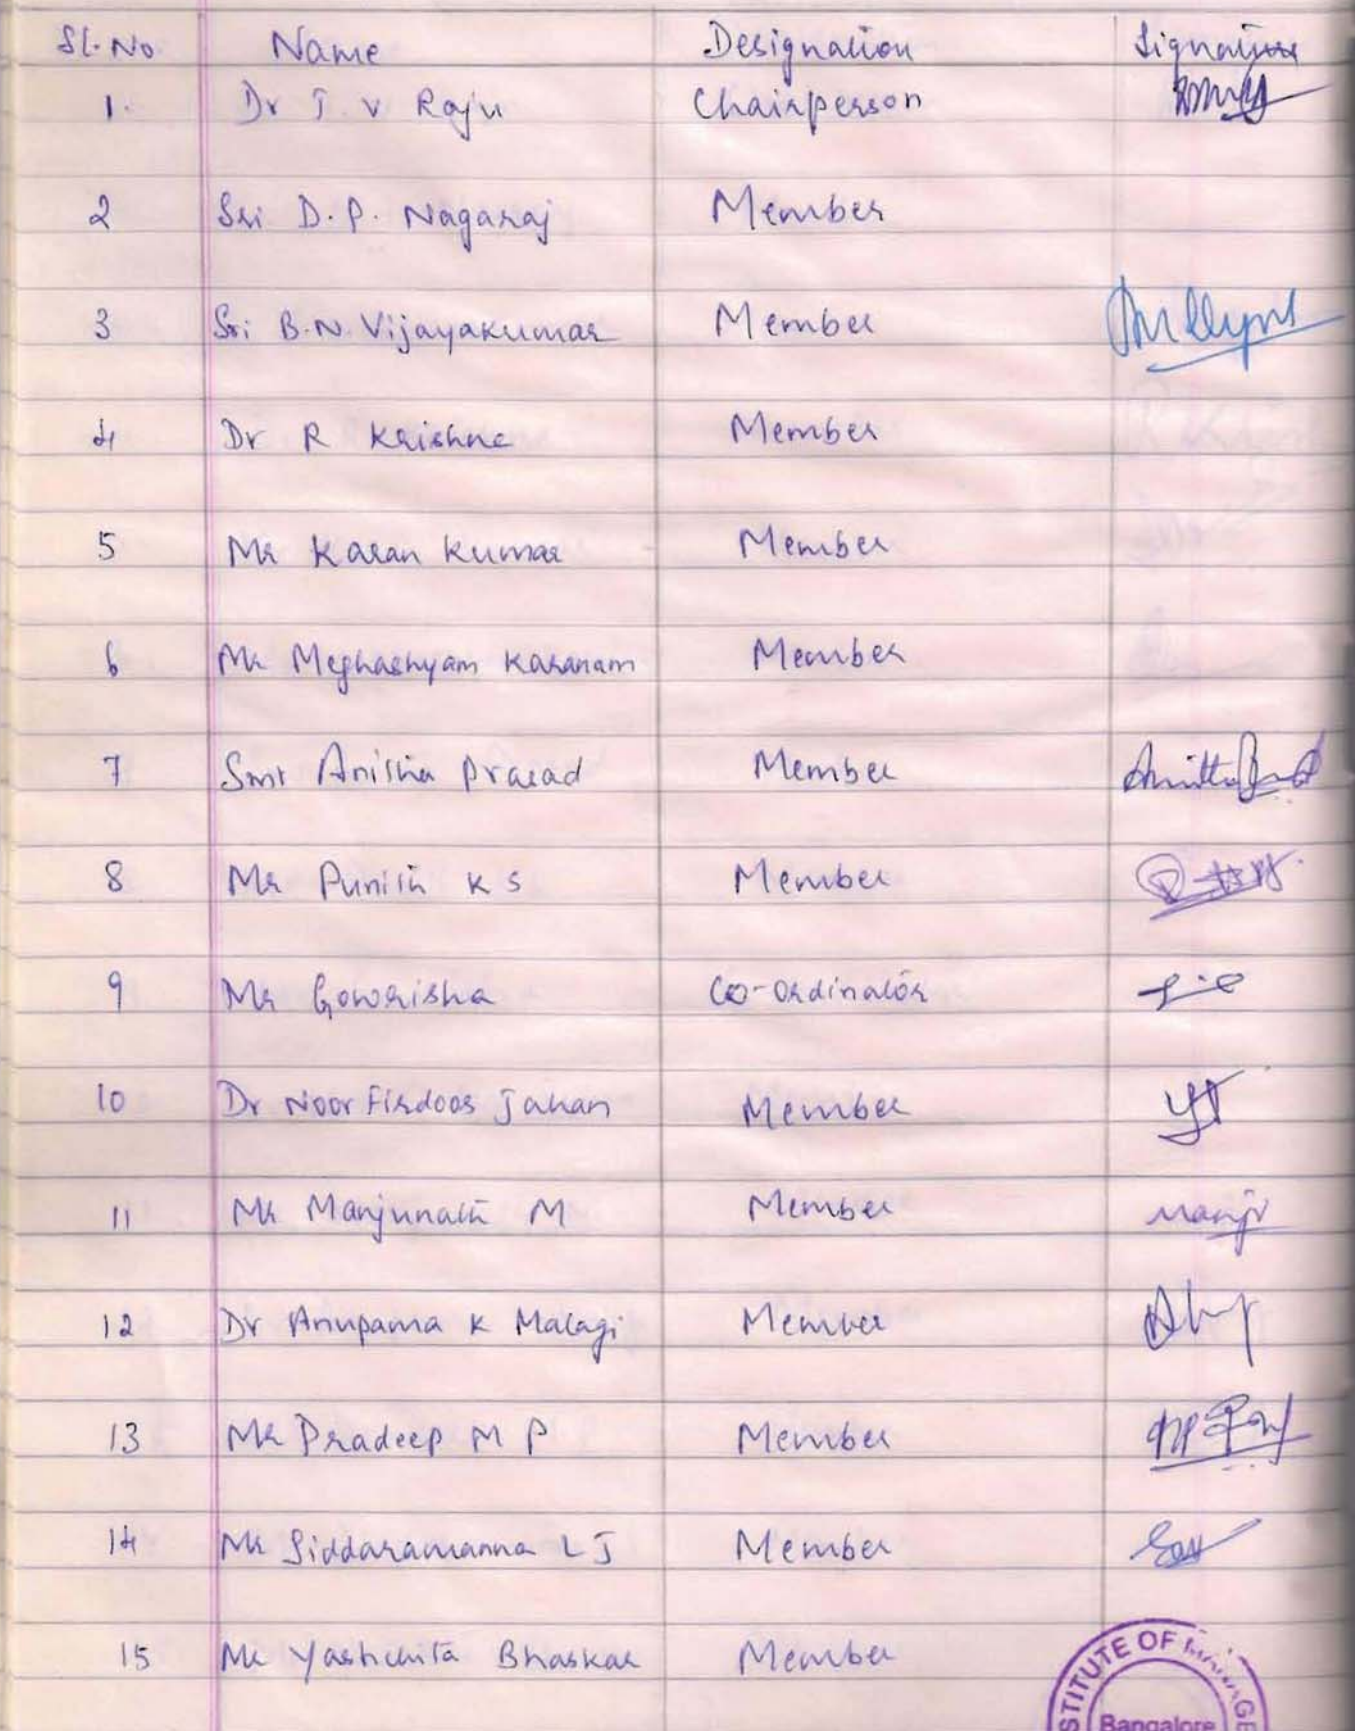 Sl. No Name Designation Signature
1. Dr T. V Raju Chairperson
2 Sri D.P. Nagaraj Member
3 Sri B.N. Vijayakumar Member
4 Dr R Krishna Member
5 Mr Karan Kumar Member
6 Mr Meghashyam Karanam Member
7 Smt Anitha Prasad Member
8 Mr Punith K S Member
9 Mr Gowrisha Co-ordinator
10 Dr Noor Firdoos Jahan Member
11 Mr Manjunath M Member Manju
12 Dr Anupama K Malagi Member
13 Mr Pradeep M P Member
14 Mr Siddaramanna L J Member
15 Mr Yashchita Bhaskar Member
STITUTE OF
Bangalore